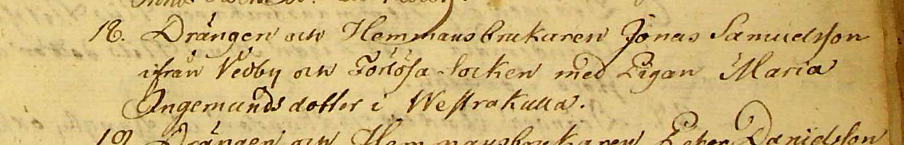 18. Drängen och Hemmansbrukaren Jonas Samuelsson
ifrån Vedby och Torhåsa Socken med Pigan Maria
Ingemundsdotter i Westrakulla.
19. Drängen och Hemmansbrukaren Peter Danielsson